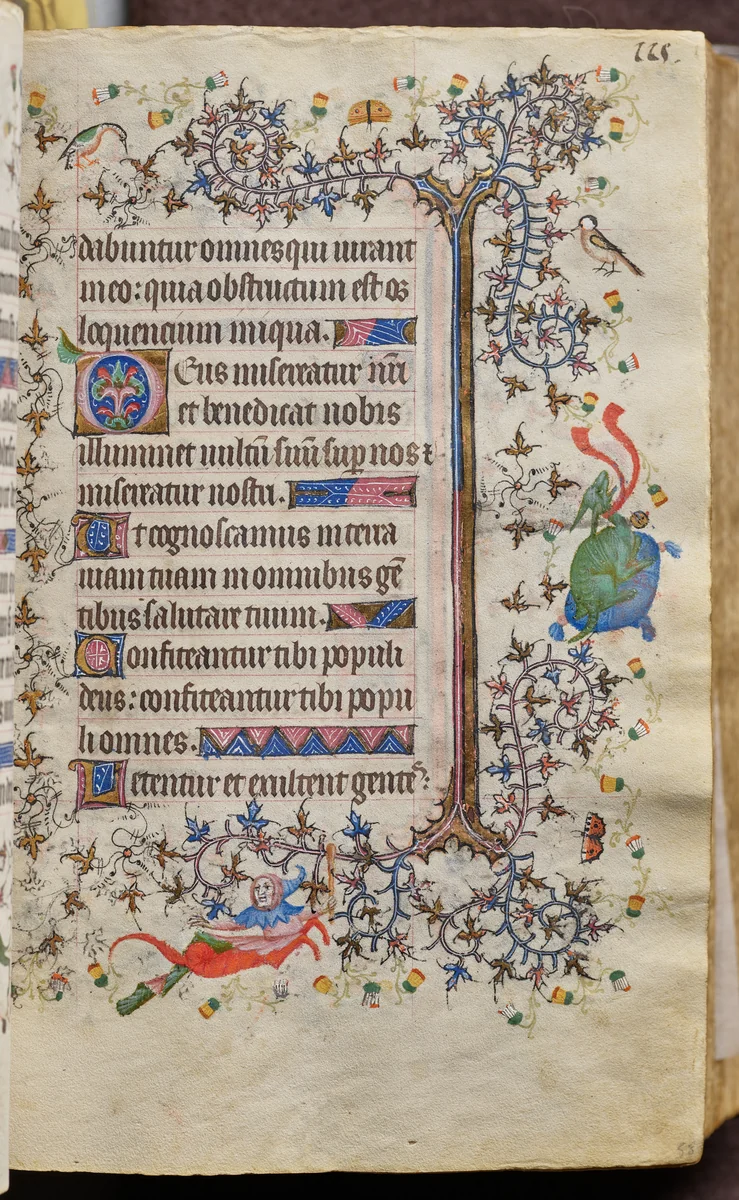 115.
dabuntur omnes qui iurant
in eo: quia obstructum est os
loquentium iniqua.
Deus misereatur nr̄i
et benedicat nobis
illuminet uultū suū sup nos ⁊
misereatur nostri.
Et cognoscamus in terra
uiam tuam in omnibus gē
tibus salutare tuum.
Confiteantur tibi populi
deus: confiteantur tibi popu
li omnes.
Letentur et exultent gentes: